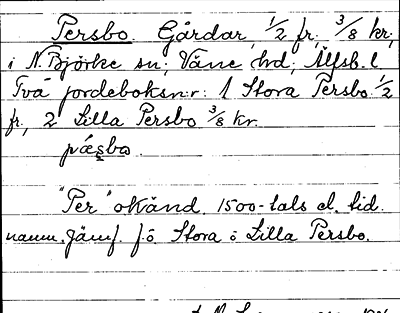 Persbo. Gårdar, 1/2 fr, 3/8 kr,
i N. Björke sn; Väne hd; Älfsb. l
Två jordeboksn:r: 1 Stora Persbo 1/2
fr, 2 Lilla Persbo 3/8 kr.
pæsbo.
"Per" okänd. 1500-tals el. tid.
namn. Jämf. f.ö. Stora o Lilla Persbo.